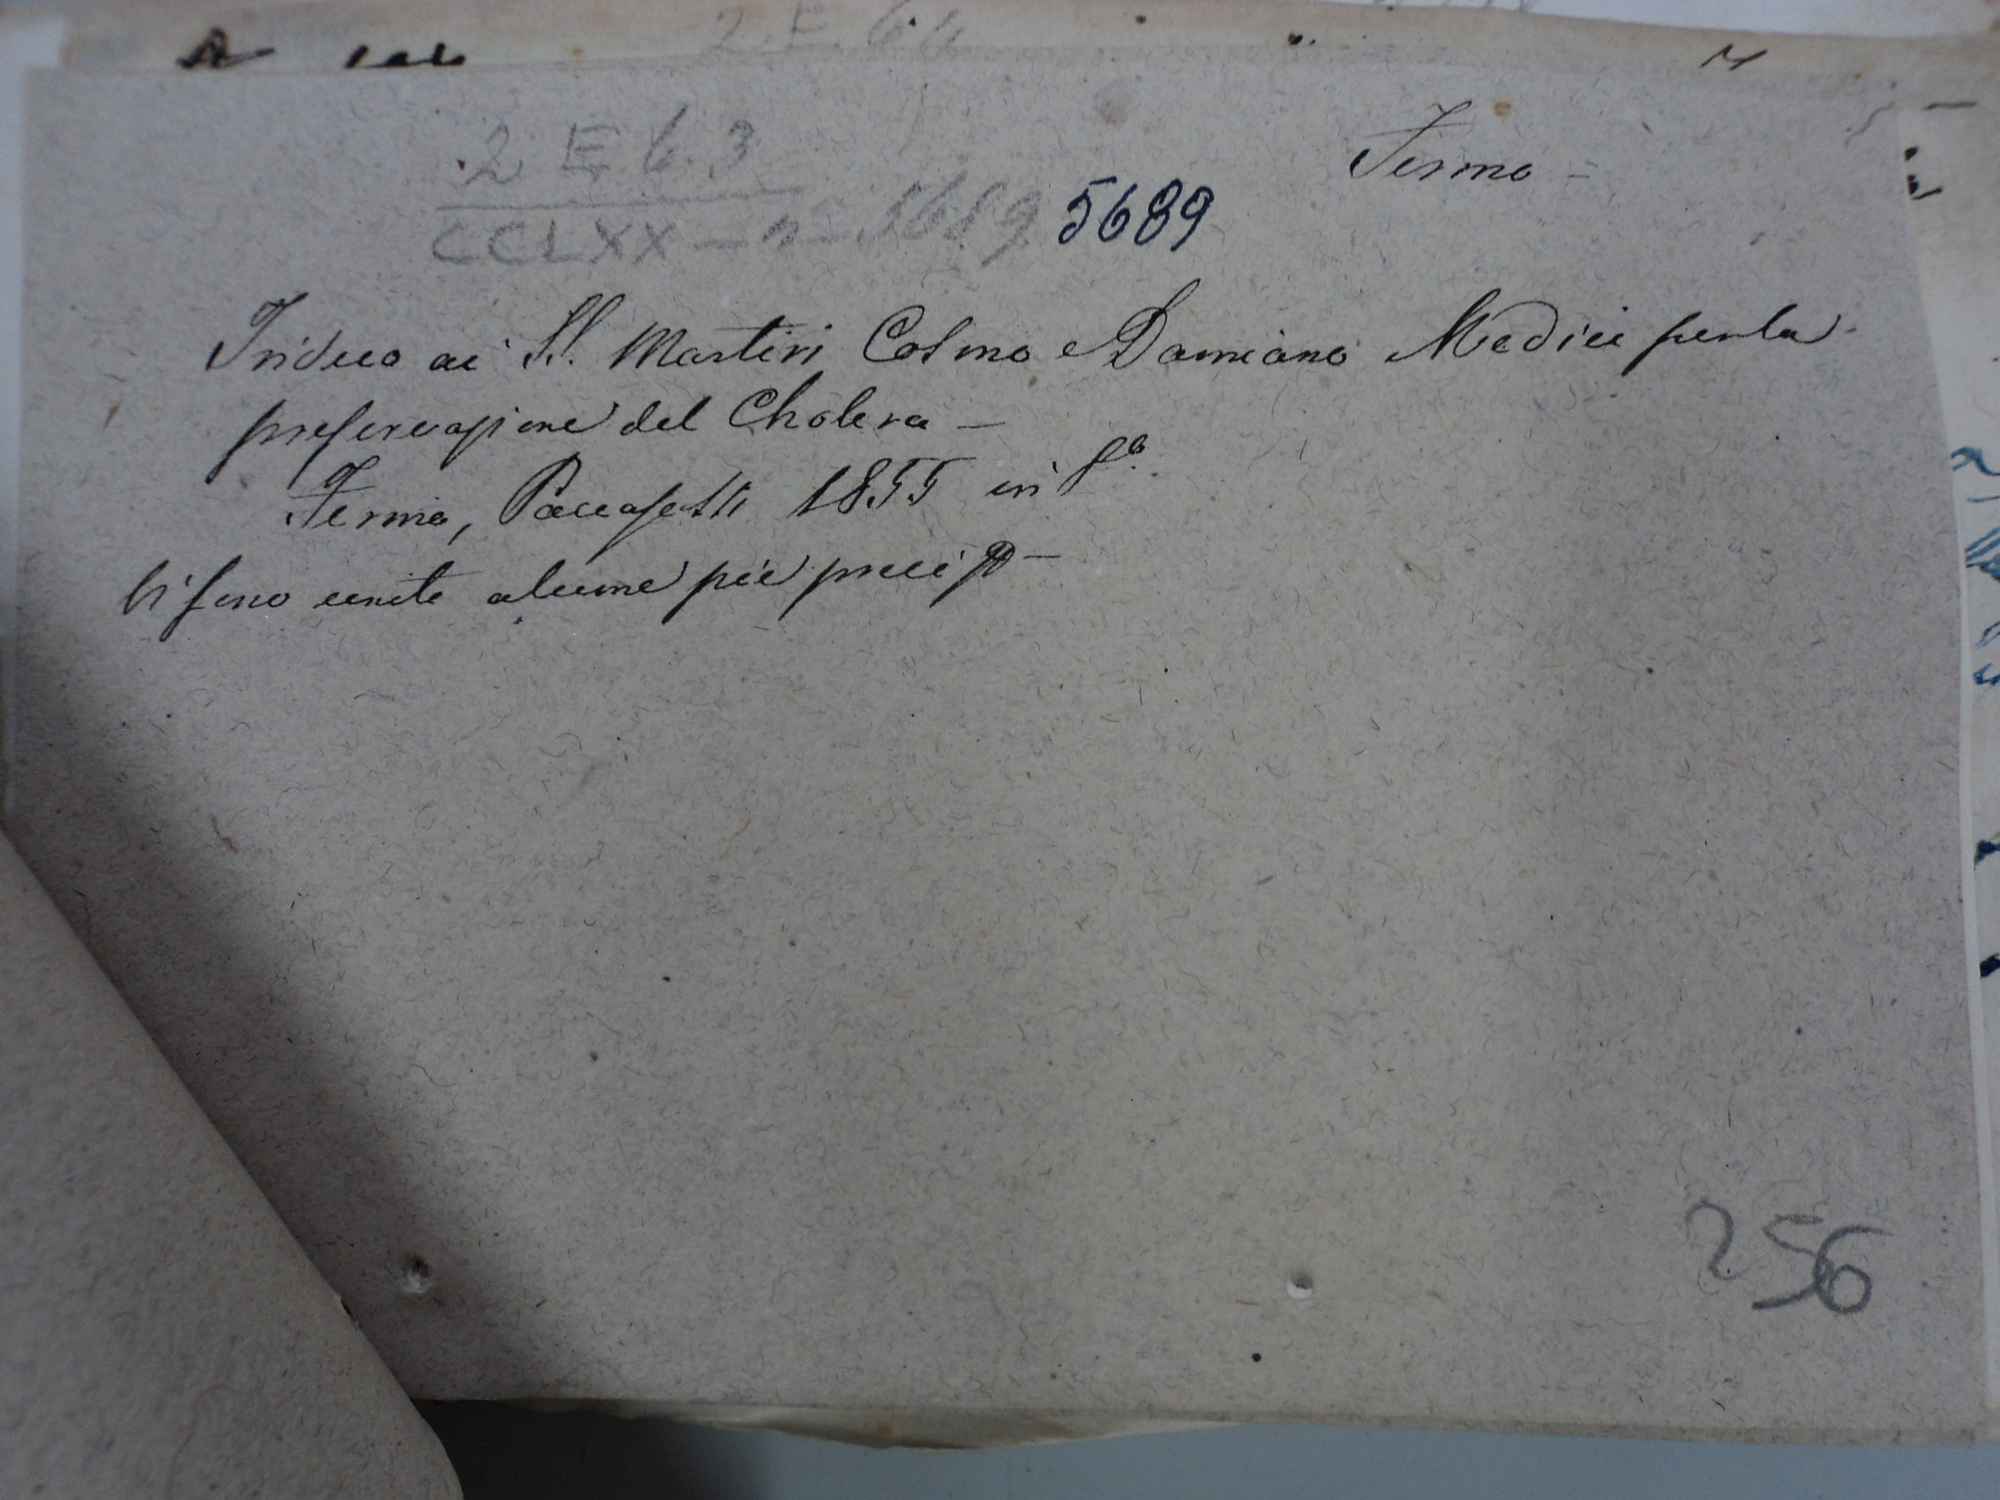 2 E 6.3
Fermo =
CCLXX - n° 5689 5689
Triduo ai SS. Martiri Cosmo e Damiano Medici per la
preservazione del Cholera -
Fermo, Paccasassi 1855 in 8°.
Vi sono unite alcune più preci
256